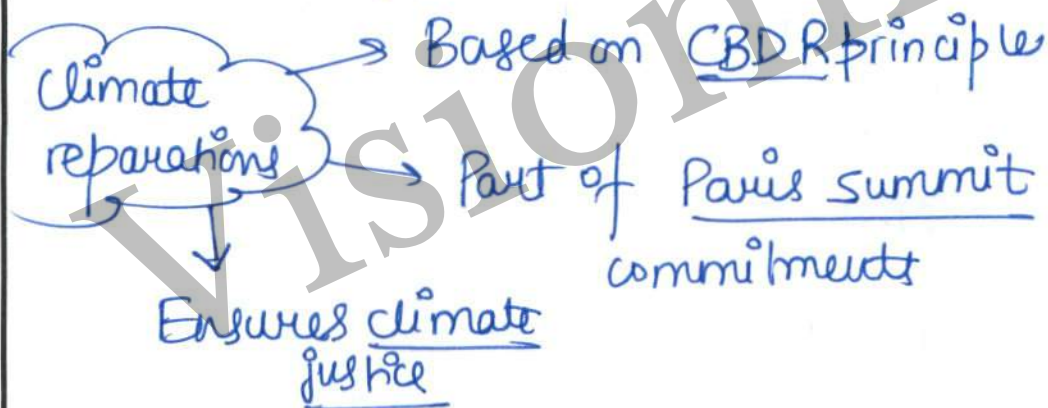 Climate
reparations
Based on CBDR principle
Part of Paris summit
commitments
Ensures climate
justice
Vision